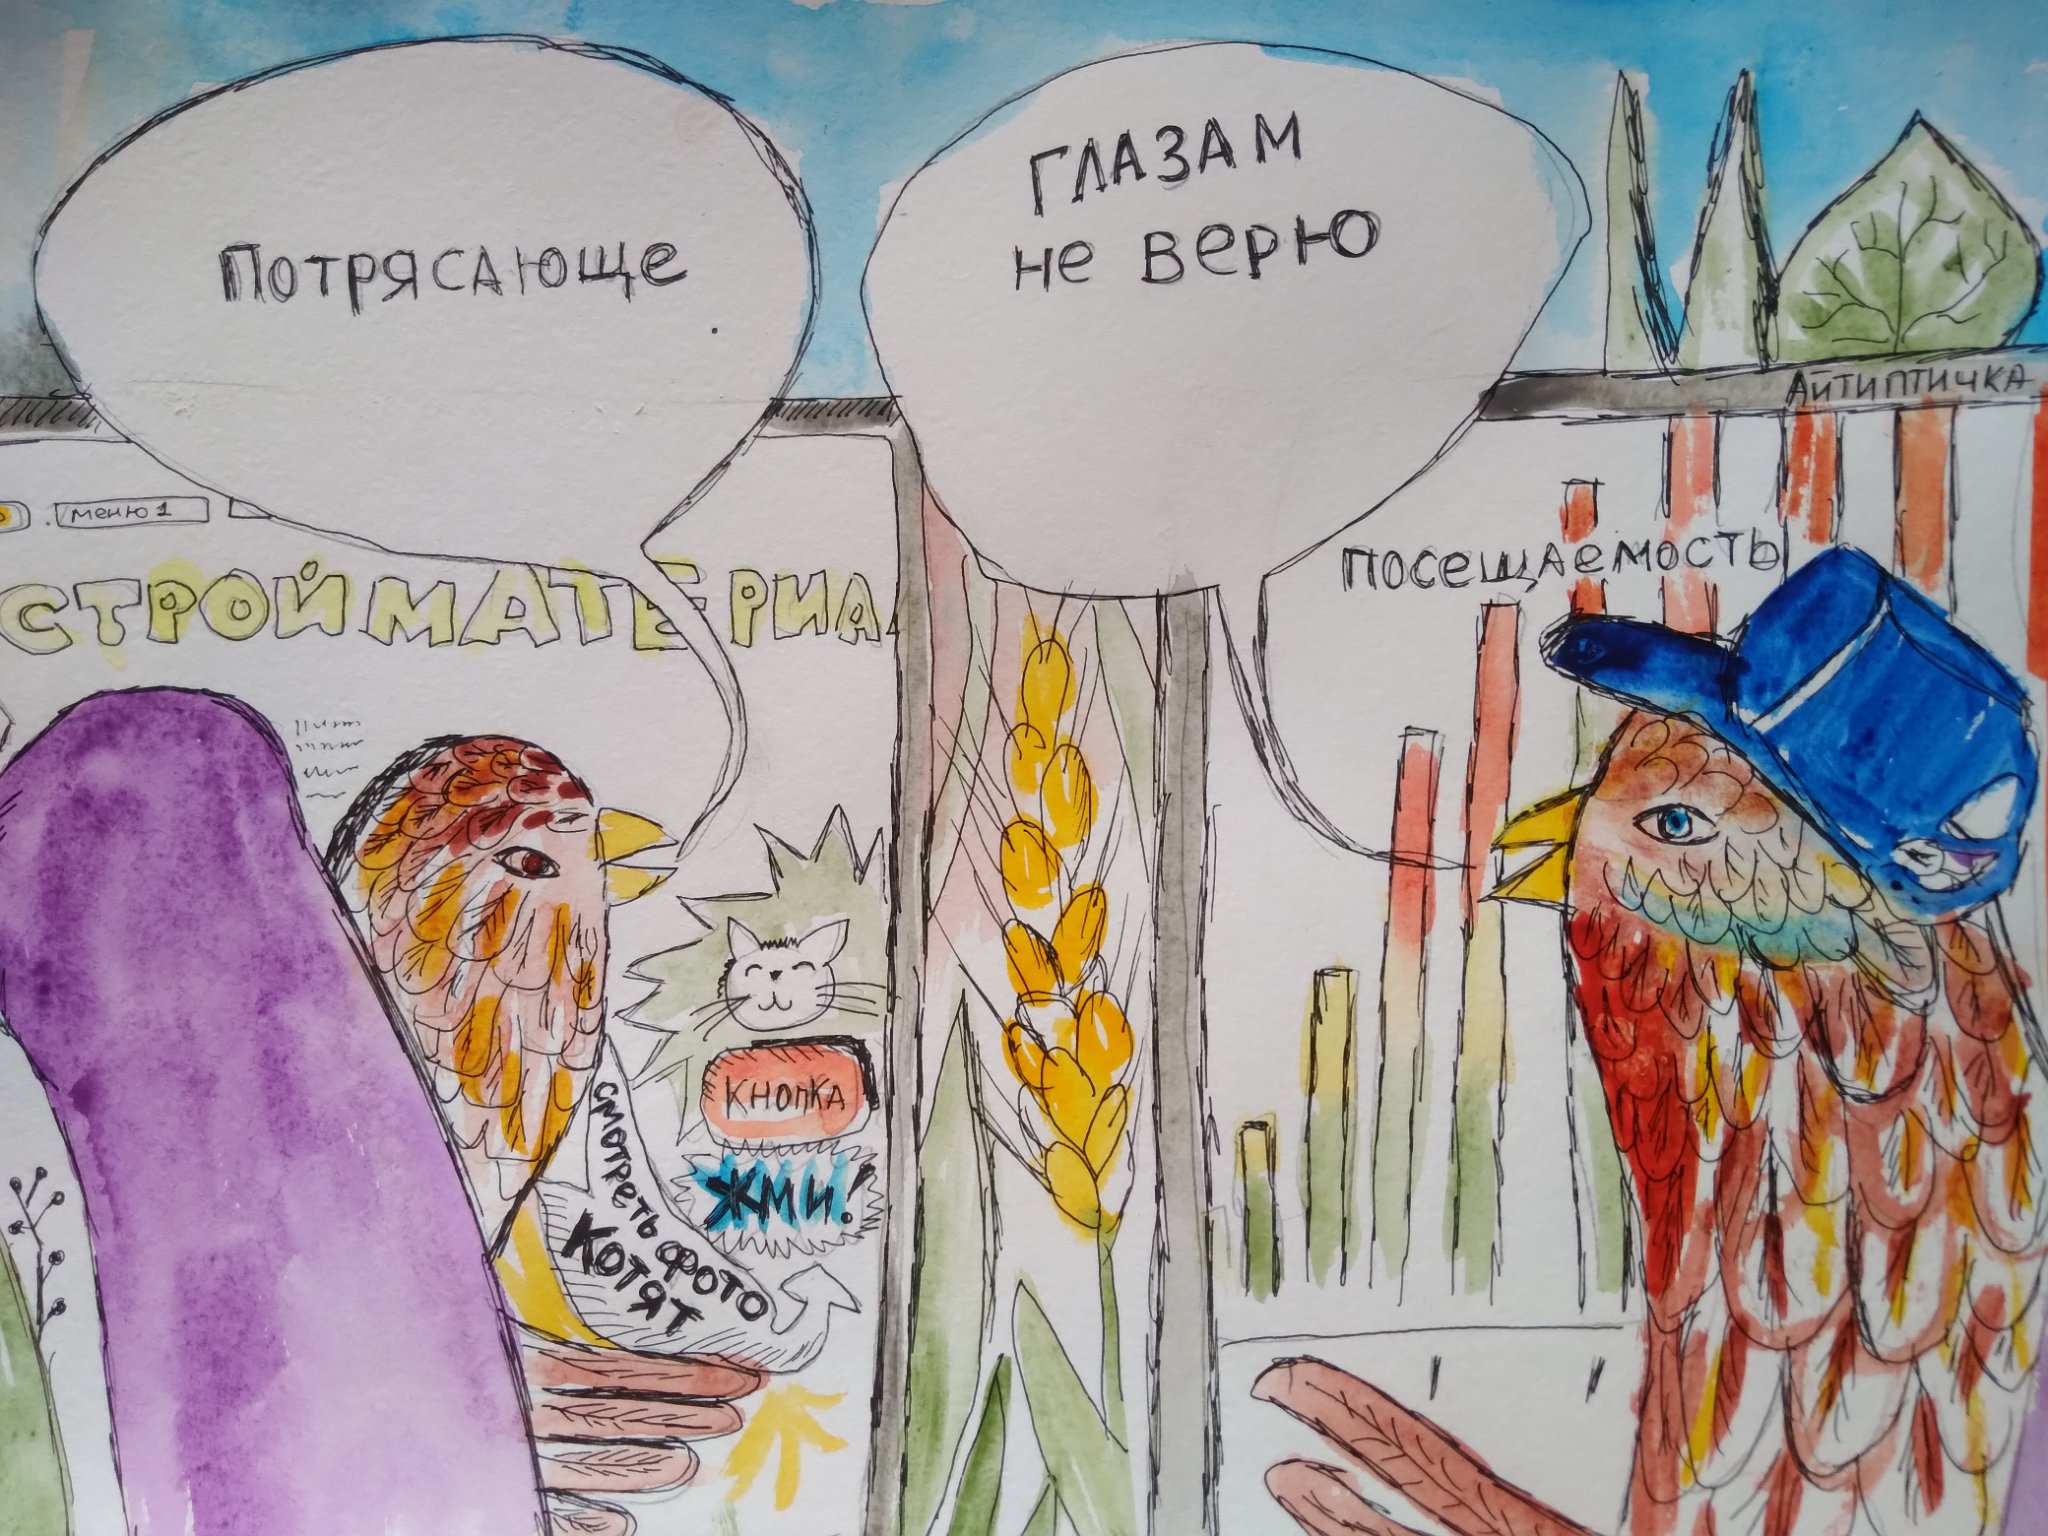 Потрясающе
ГЛАЗАМ
не верю
АЙТИПТИЧКА
меню 1
СТРОЙМАТЕРИА
ПОСЕЩАЕМОСТЬ
КНОПКА
ЖМИ!
СМОТРЕТЬ ФОТО
КОТЯТ